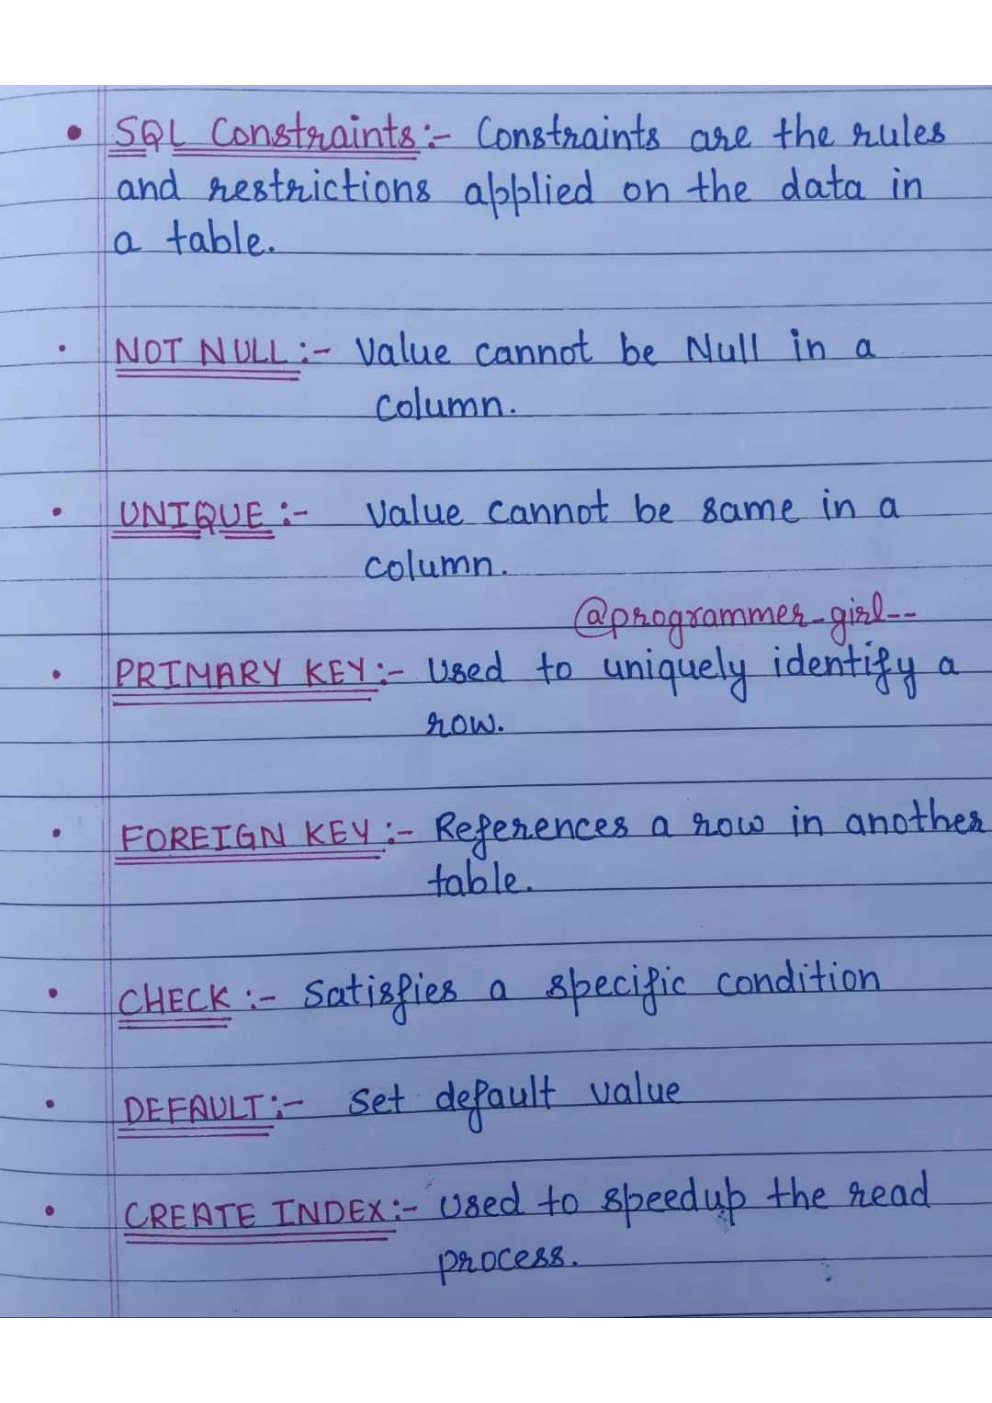 • SQL Constraints :- Constraints are the rules
and restrictions applied on the data in
a table.
• NOT NULL :- Value cannot be Null in a
column.
• UNIQUE :- Value cannot be same in a
column.
@programmer_girl--
• PRIMARY KEY :- Used to uniquely identify a
row.
• FOREIGN KEY :- References a row in another
table.
• CHECK :- Satisfies a specific condition
• DEFAULT :- Set default value
• CREATE INDEX :- Used to speedup the read
process.